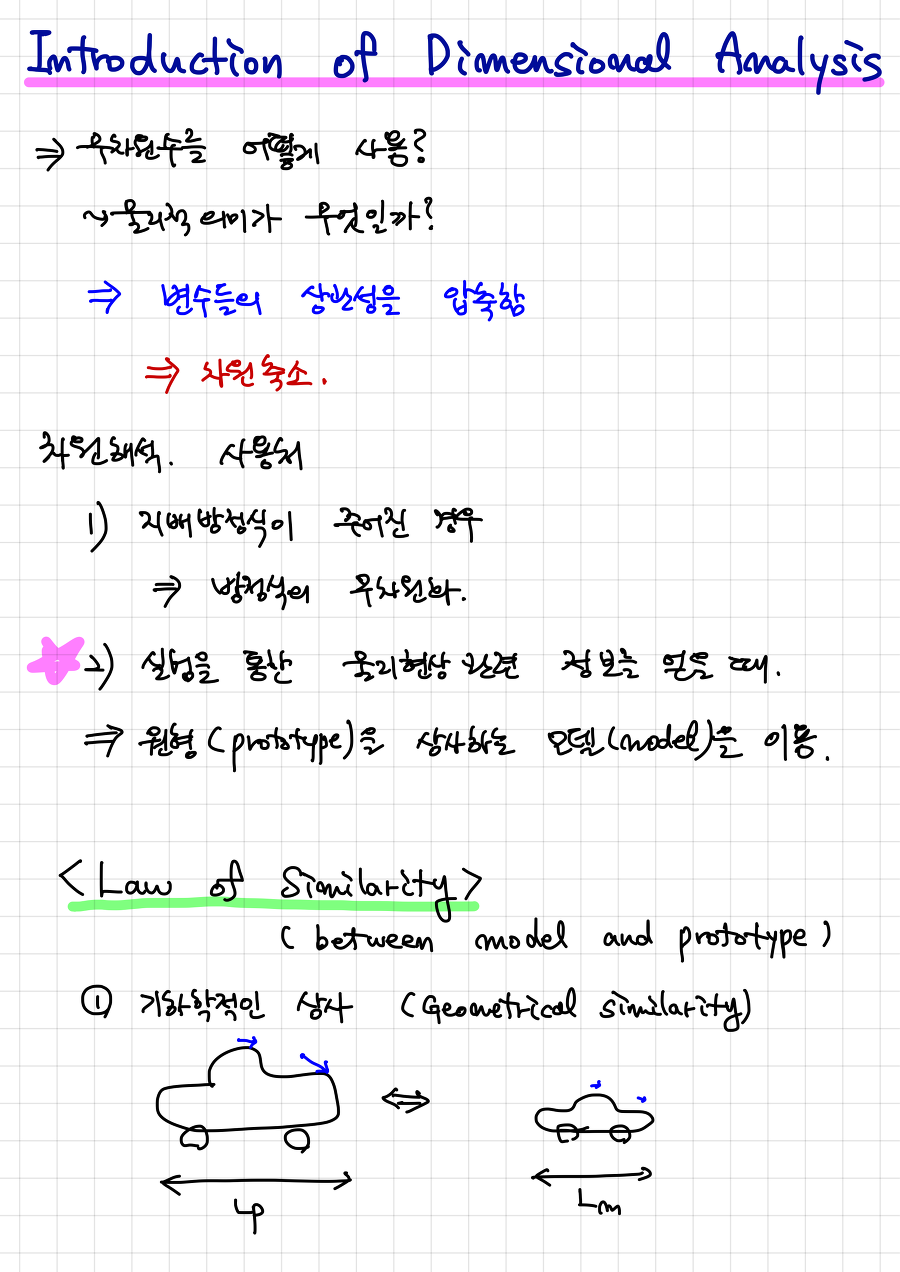 Introduction of Dimensional Analysis
⇒ 무차원수를 어떻게 사용?
~> 물리적 의미가 무엇일까?
⇒ 변수들의 상관성을 압축함
⇒ 차원축소.
차원해석. 사용처
1) 지배방정식이 주어진 경우
⇒ 방정식의 무차원화.
2) 실험을 통한 물리현상 관련 정보를 얻을 때.
⇒ 원형(prototype)을 상사하는 모델(model)을 이용.
<Law of Similarity>
(between model and prototype)
① 기하학적인 상사 (Geometrical similarity)
⇔
Lp Lm